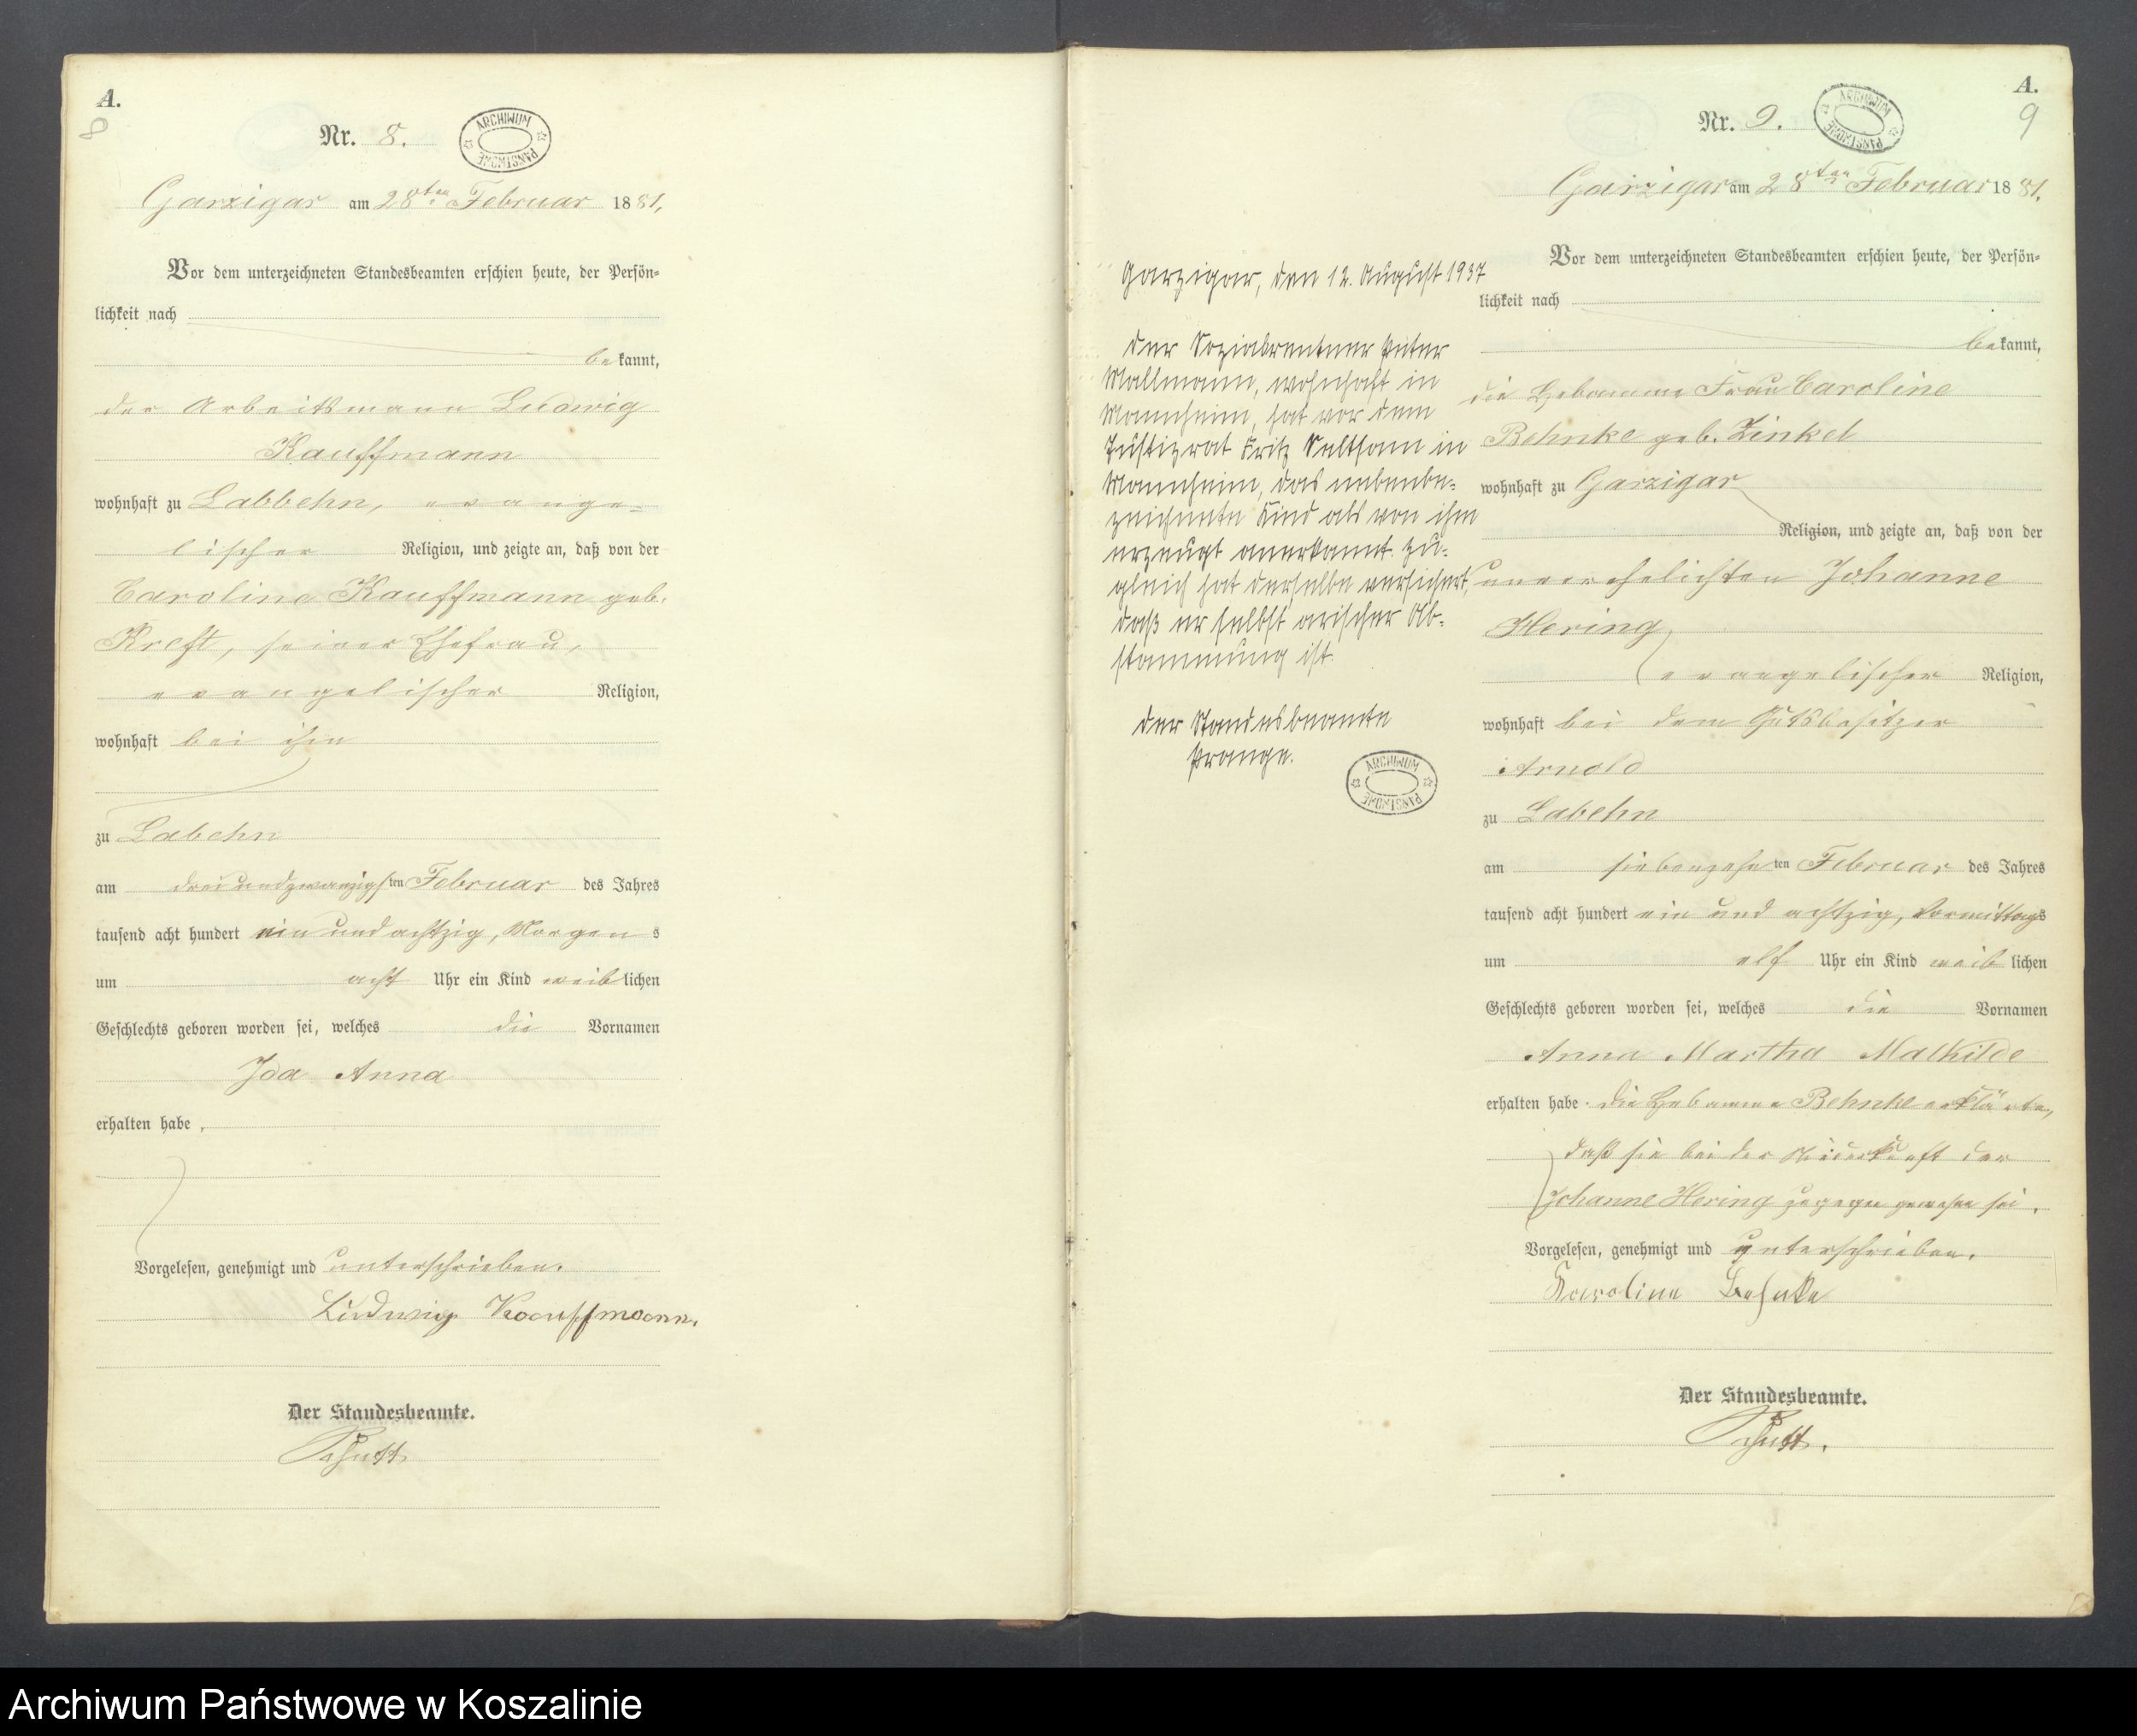 A.
8
Nr. 8.
ARCHIWUM PAŃSTWOWE
Garzigar am 28ten Februar 1881,
Vor dem unterzeichneten Standesbeamten erschien heute, der Persön=
lichkeit nach
bekannt,
der Arbeitsmann Ludwig
Kauffmann
wohnhaft zu Labbehn, evange=
lischer Religion, und zeigte an, daß von der
Caroline Kauffmann geb.
Kreft, seiner Ehefrau,
evangelischer Religion,
wohnhaft bei ihm
zu Labehn
am dreiundzwanzigsten Februar des Jahres
tausend acht hundert ein und achtzig, Morgens
um acht Uhr ein Kind weiblichen
Geschlechts geboren worden sei, welches die Vornamen
Ida Anna
erhalten habe,
Vorgelesen, genehmigt und unterschrieben.
Ludwig Kauffmann.
Der Standesbeamte.
Garzigar, den 12. August 1937
Der Sozialrentner Peter
Mallmann, wohnhaft in
Mannheim, hat vor dem
Justizrat Fritz Seltsam in
Mannheim, das nebenbe=
zeichnete Kind als von ihm
erzeugt anerkannt. Zu=
gleich hat derselbe versichert,
daß er selbst arischer Ab=
stammung ist.
Der Standesbeamte
Prange.
ARCHIWUM PAŃSTWOWE
A.
9
Nr. 9.
ARCHIWUM PAŃSTWOWE
Garzigar am 28ten Februar 1881.
Vor dem unterzeichneten Standesbeamten erschien heute, der Persön=
lichkeit nach
bekannt,
die Hebamme Frau Caroline
Behnke geb. Zinkel
wohnhaft zu Garzigar
Religion, und zeigte an, daß von der
unverehelichten Johanne
Hering
evangelischer Religion,
wohnhaft bei dem Gutsbesitzer
Arnold
zu Labehn
am siebenzehnten Februar des Jahres
tausend acht hundert ein und achtzig, Vormittags
um elf Uhr ein Kind weiblichen
Geschlechts geboren worden sei, welches die Vornamen
Anna Martha Mathilde
erhalten habe. Die Hebamme Behnke erklärte,
daß sie bei der Niederkunft der
Johanne Hering zugegen gewesen sei.
Vorgelesen, genehmigt und unterschrieben.
Karoline Behnke
Der Standesbeamte.
Archiwum Państwowe w Koszalinie